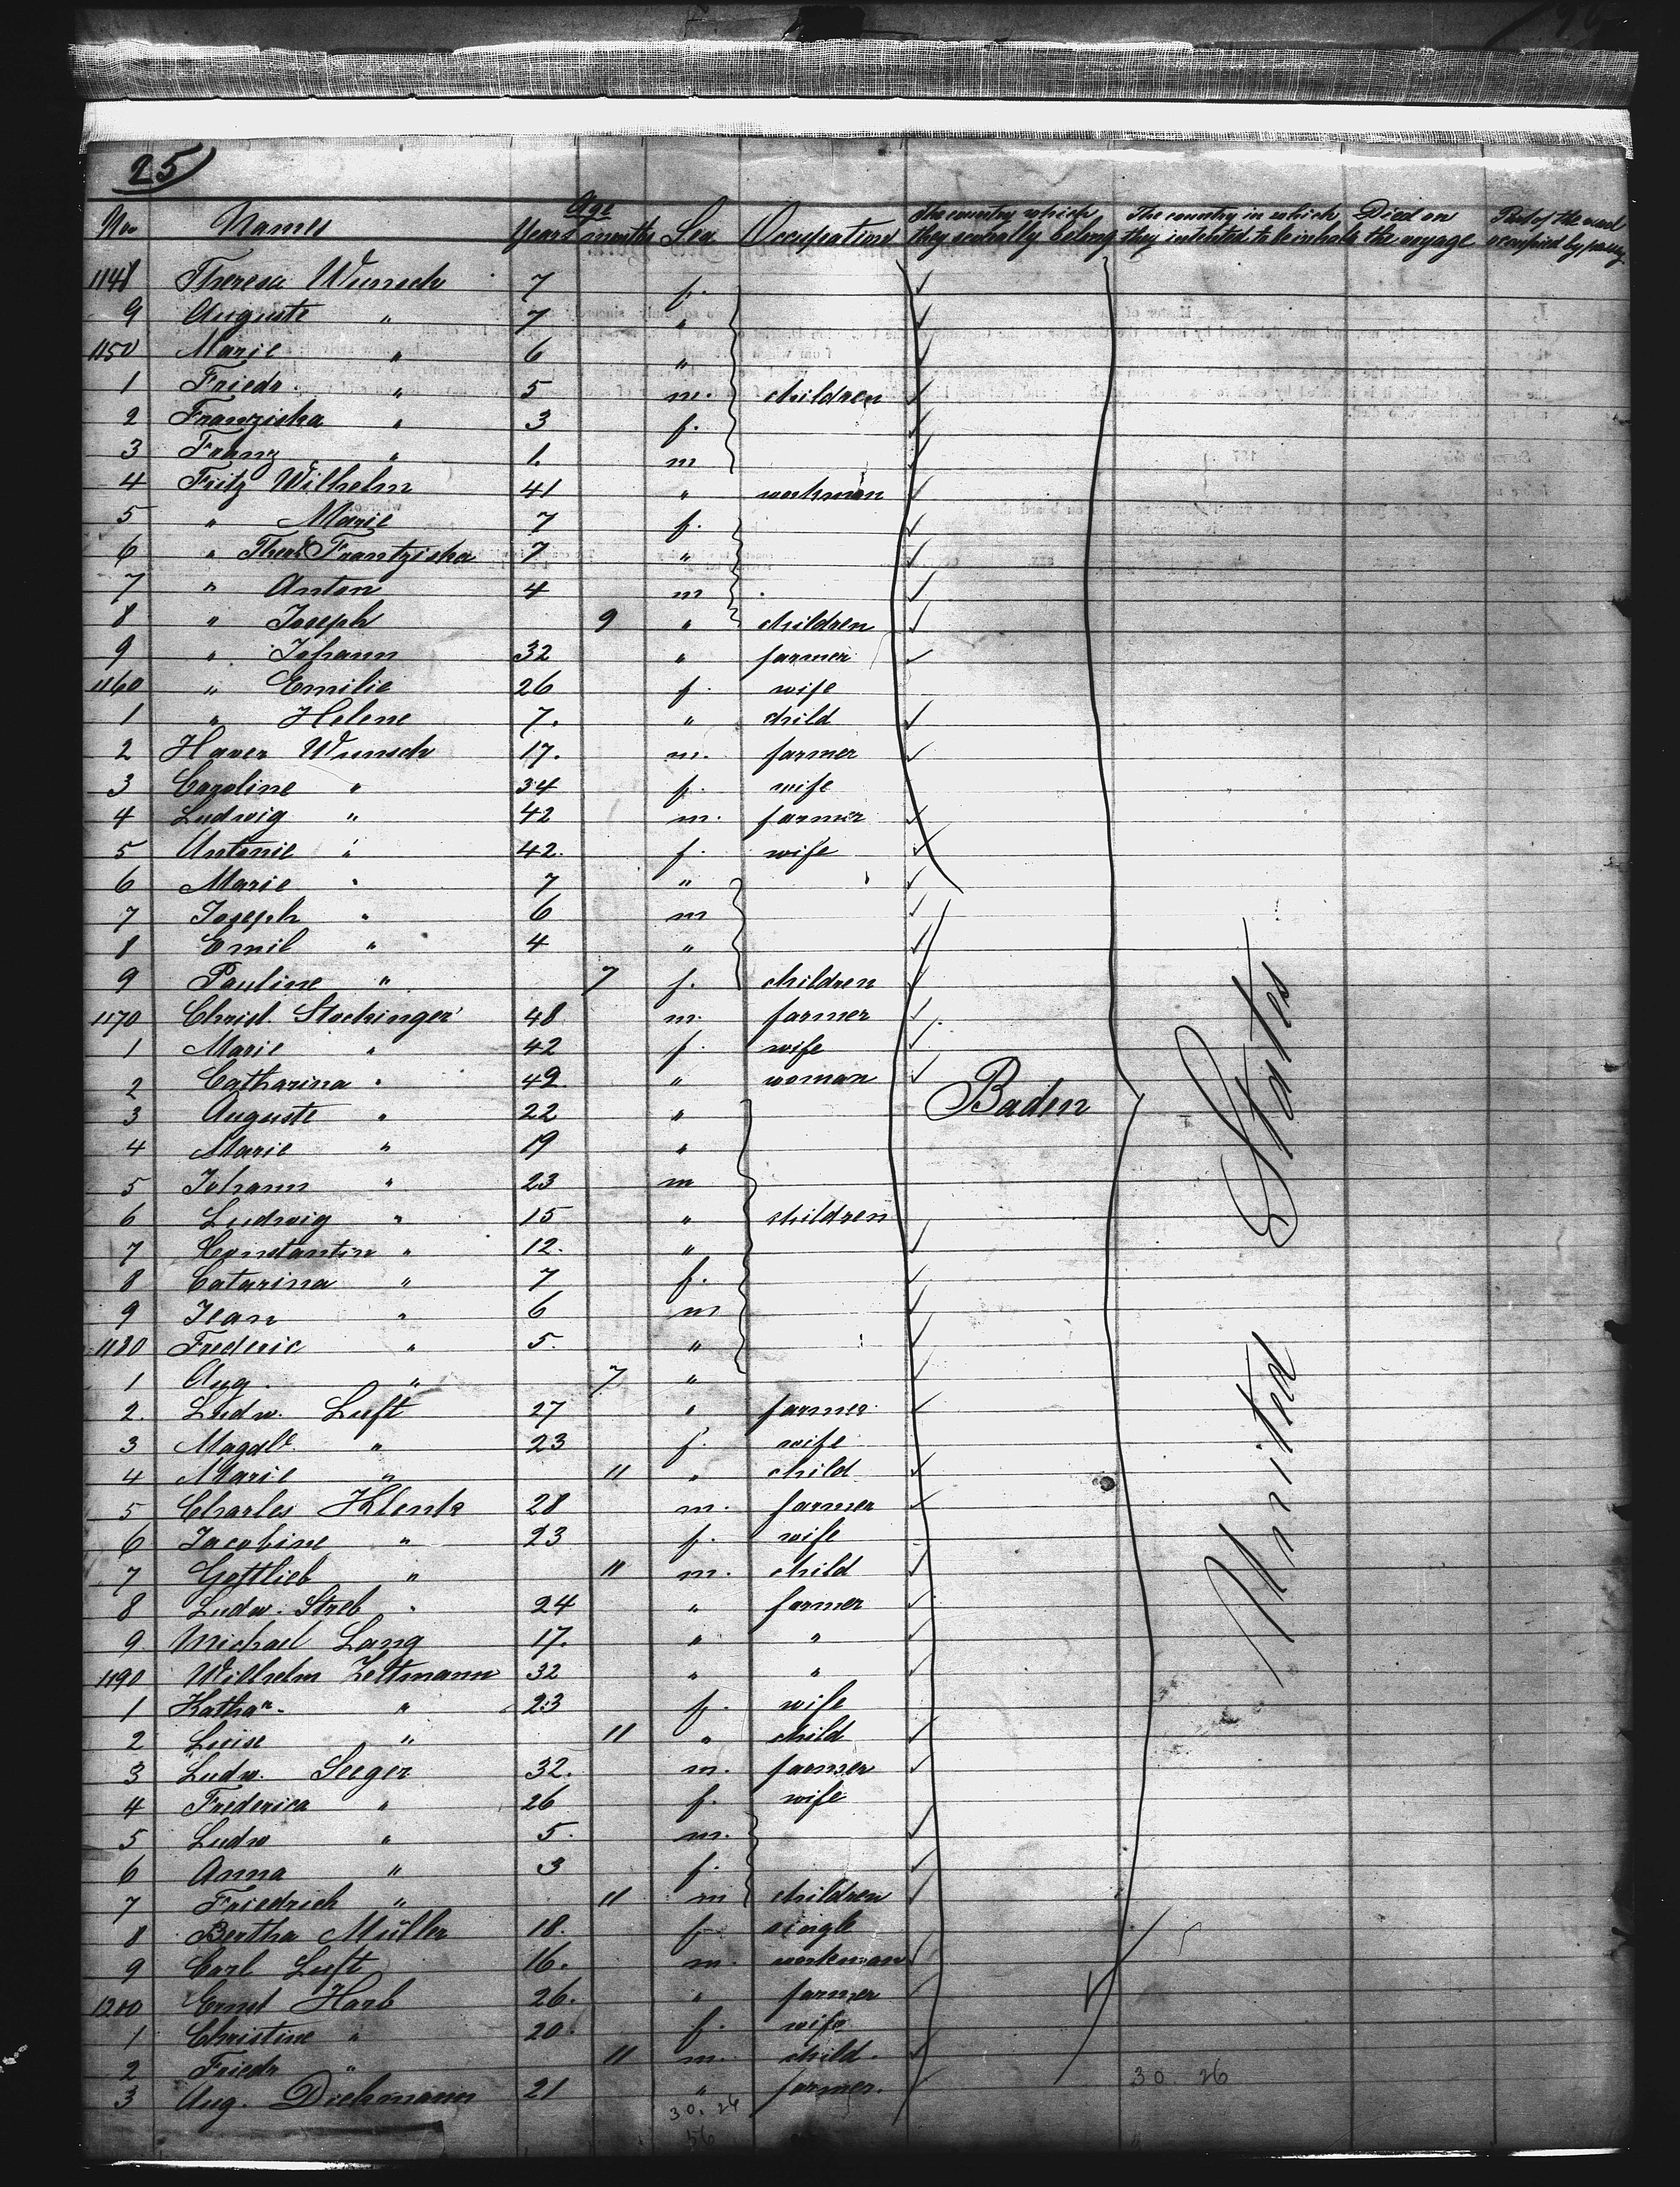 25
Age
No Names Years months Sex Occupation The country which they severally belong The country in which they intented to be inhab. Died on the voyage Part of the vessel occupied by passeng.
1148 Theresa Wunsch 7 f.
9 Auguste " 7 "
1150 Marie " 6 "
1 Friedr. " 5 m. children
2 Franziska " 3 f.
3 Franz " 1. m
4 Fritz Wilhelm 41 " workman
5 " Marie 7 f.
6 " Frantziska 7 "
7 " Anton 4 m
8 " Joseph 9 " children
9 " Johann 32 " farmer
1160 " Emilie 26 f. wife
1 " Helene 7. " child
2 Haver Wunsch 17. m. farmer
3 Caroline " 34 f. wife
4 Ludwig " 42 m. farmer
5 Antonie " 42. f. wife
6 Marie " 7 "
7 Joseph " 6 m
8 Emil " 4 "
9 Pauline " 7 f. children
1170 Christ. Stockinger 48 m. farmer
1 Marie " 42 f. wife
2 Catharina " 49 " woman
3 Auguste " 22 " Baden
4 Marie " 19 "
5 Johann " 23 m
6 Ludwig " 15 " children
7 Constantin " 12. "
8 Catarina " 7 f.
9 Jean " 6 m
1180 Frederic " 5. "
1 Aug. " 7 "
2. Ludw. Luft 27 " farmer
3 Magdl. " 23 f. wife
4 Marie " 11 " child
5 Charles Klenk 28 m. farmer
6 Jacobine " 23 f. wife
7 Gottlieb " 11 m. child
8 Ludw. Streb 24 " farmer
9. Michael Lang 17. " "
1190 Wilhelm Zeltmann 32 " "
1 Kathan. " 23 f. wife
2 Luise " 11 " child
3 Ludw. Seeger 32. m. farmer
4 Frederica " 26 f. wife
5 Ludw " 5. m.
6 Anna " 3 f.
7 Friedrich " 11 m children
8 Bertha Müller 18. f. single
9 Carl Luft 16. m. workman
1200 Ernst Harb 26. " farmer
1 Christine " 20. f. wife
2 Friedr " 11 m. child.
3 Aug. Diekmann 21 " farmer.
United States
30. 26
30. 26
56